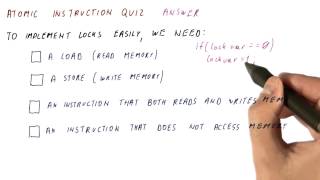 ATOMIC INSTRUCTION QUIZ ANSWER
TO IMPLEMENT LOCKS EASILY, WE NEED:
if(lock var == 0)
lock var = 1
A LOAD (READ MEMORY)
A STORE (WRITE MEMORY)
AN INSTRUCTION THAT BOTH READS AND WRITES MEM
AN INSTRUCTION THAT DOES NOT ACCESS MEMORY